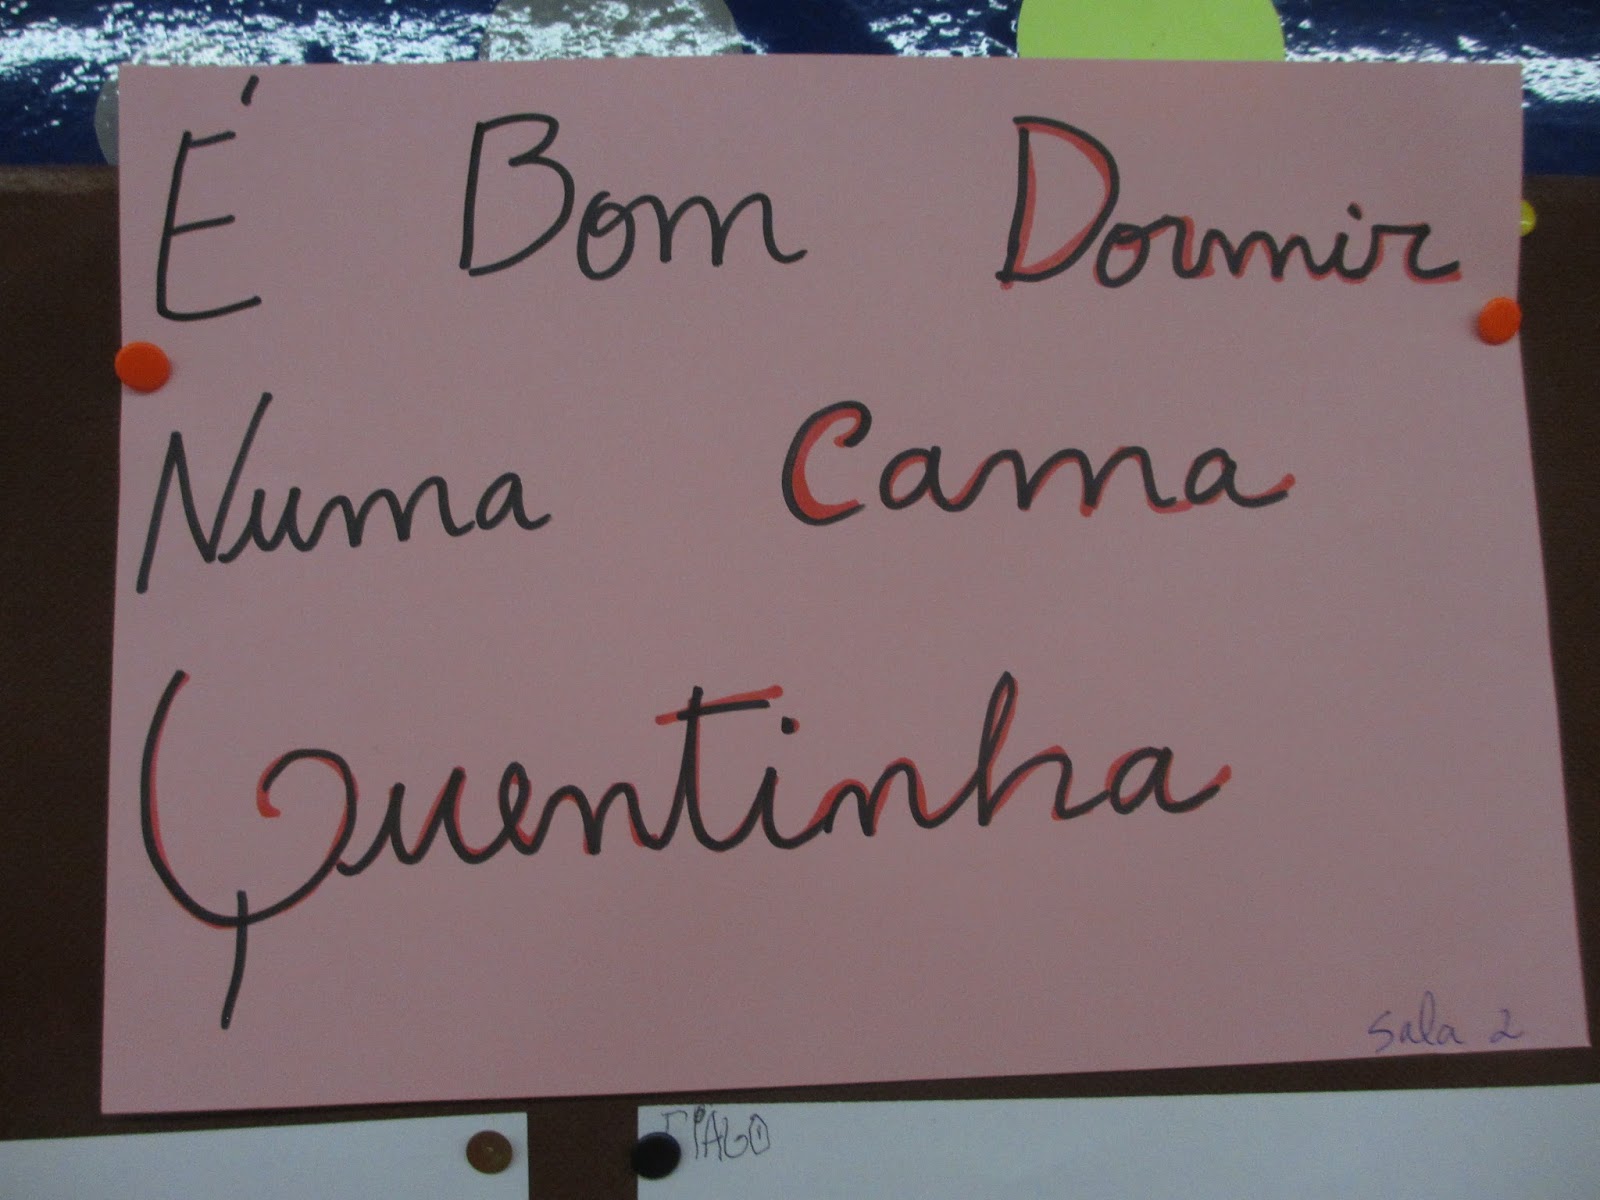 É Bom Dormir
Numa Cama
Quentinha
Sala 2